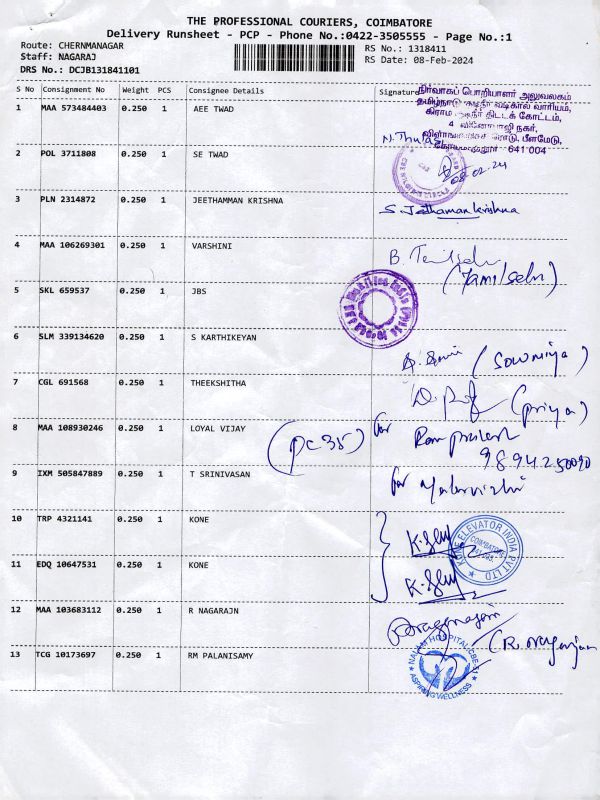 THE PROFESSIONAL COURIERS, COIMBATORE
Delivery Runsheet - PCP - Phone No.:0422-3505555 - Page No.:1
Route: CHERNMANAGAR
RS No.: 1318411
Staff: NAGARAJ
RS Date: 08-Feb-2024
DRS No.: DCJB131841101
S No Consignment No Weight PCS Consignee Details Signature
நிர்வாகப் பொறியாளர் அலுவலகம்
1 MAA 573484403 0.250 1 AEE TWAD
கிராம குடிநீர் திட்டக் கோட்டம்,
641 004
N. Thulasi
2 POL 3711808 0.250 1 SE TWAD
08.02.24
3 PLN 2314872 0.250 1 JEETHAMMAN KRISHNA
S. Jeethaman krishna
4 MAA 106269301 0.250 1 VARSHINI
(Tamilselvi)
5 SKL 659537 0.250 1 JBS
6 SLM 339134620 0.250 1 S KARTHIKEYAN
(Sowmiya)
7 CGL 691568 0.250 1 THEEKSHITHA
(priya)
8 MAA 108930246 0.250 1 LOYAL VIJAY
(PC35)
for Ram prakash
9894250090
9 IXM 505847889 0.250 1 T SRINIVASAN
for Malarvizhi
10 TRP 4321141 0.250 1 KONE
KONE ELEVATOR INDIA PVT LTD
COIMBATORE
11 EDQ 10647531 0.250 1 KONE
12 MAA 103683112 0.250 1 R NAGARAJN
(R. Nagarajan
13 TCG 10173697 0.250 1 RM PALANISAMY
HOSPITAL
ASPIRING WELLNESS